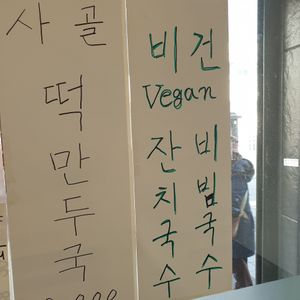 사골
떡만두국
비건
Vegan
잔치국수
비빔국수